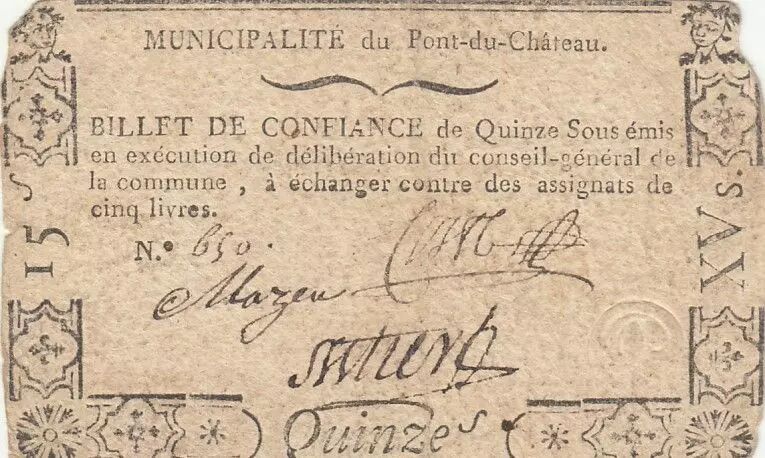 MUNICIPALITÉ du Pont-du-Château.
BILLET DE CONFIANCE de Quinze Sous émis
en exécution de délibération du conseil-général de
la commune, à échanger contre des assignats de
cinq livres.
N.º 650.
15 S
XV s.
Mazen
Quinze s